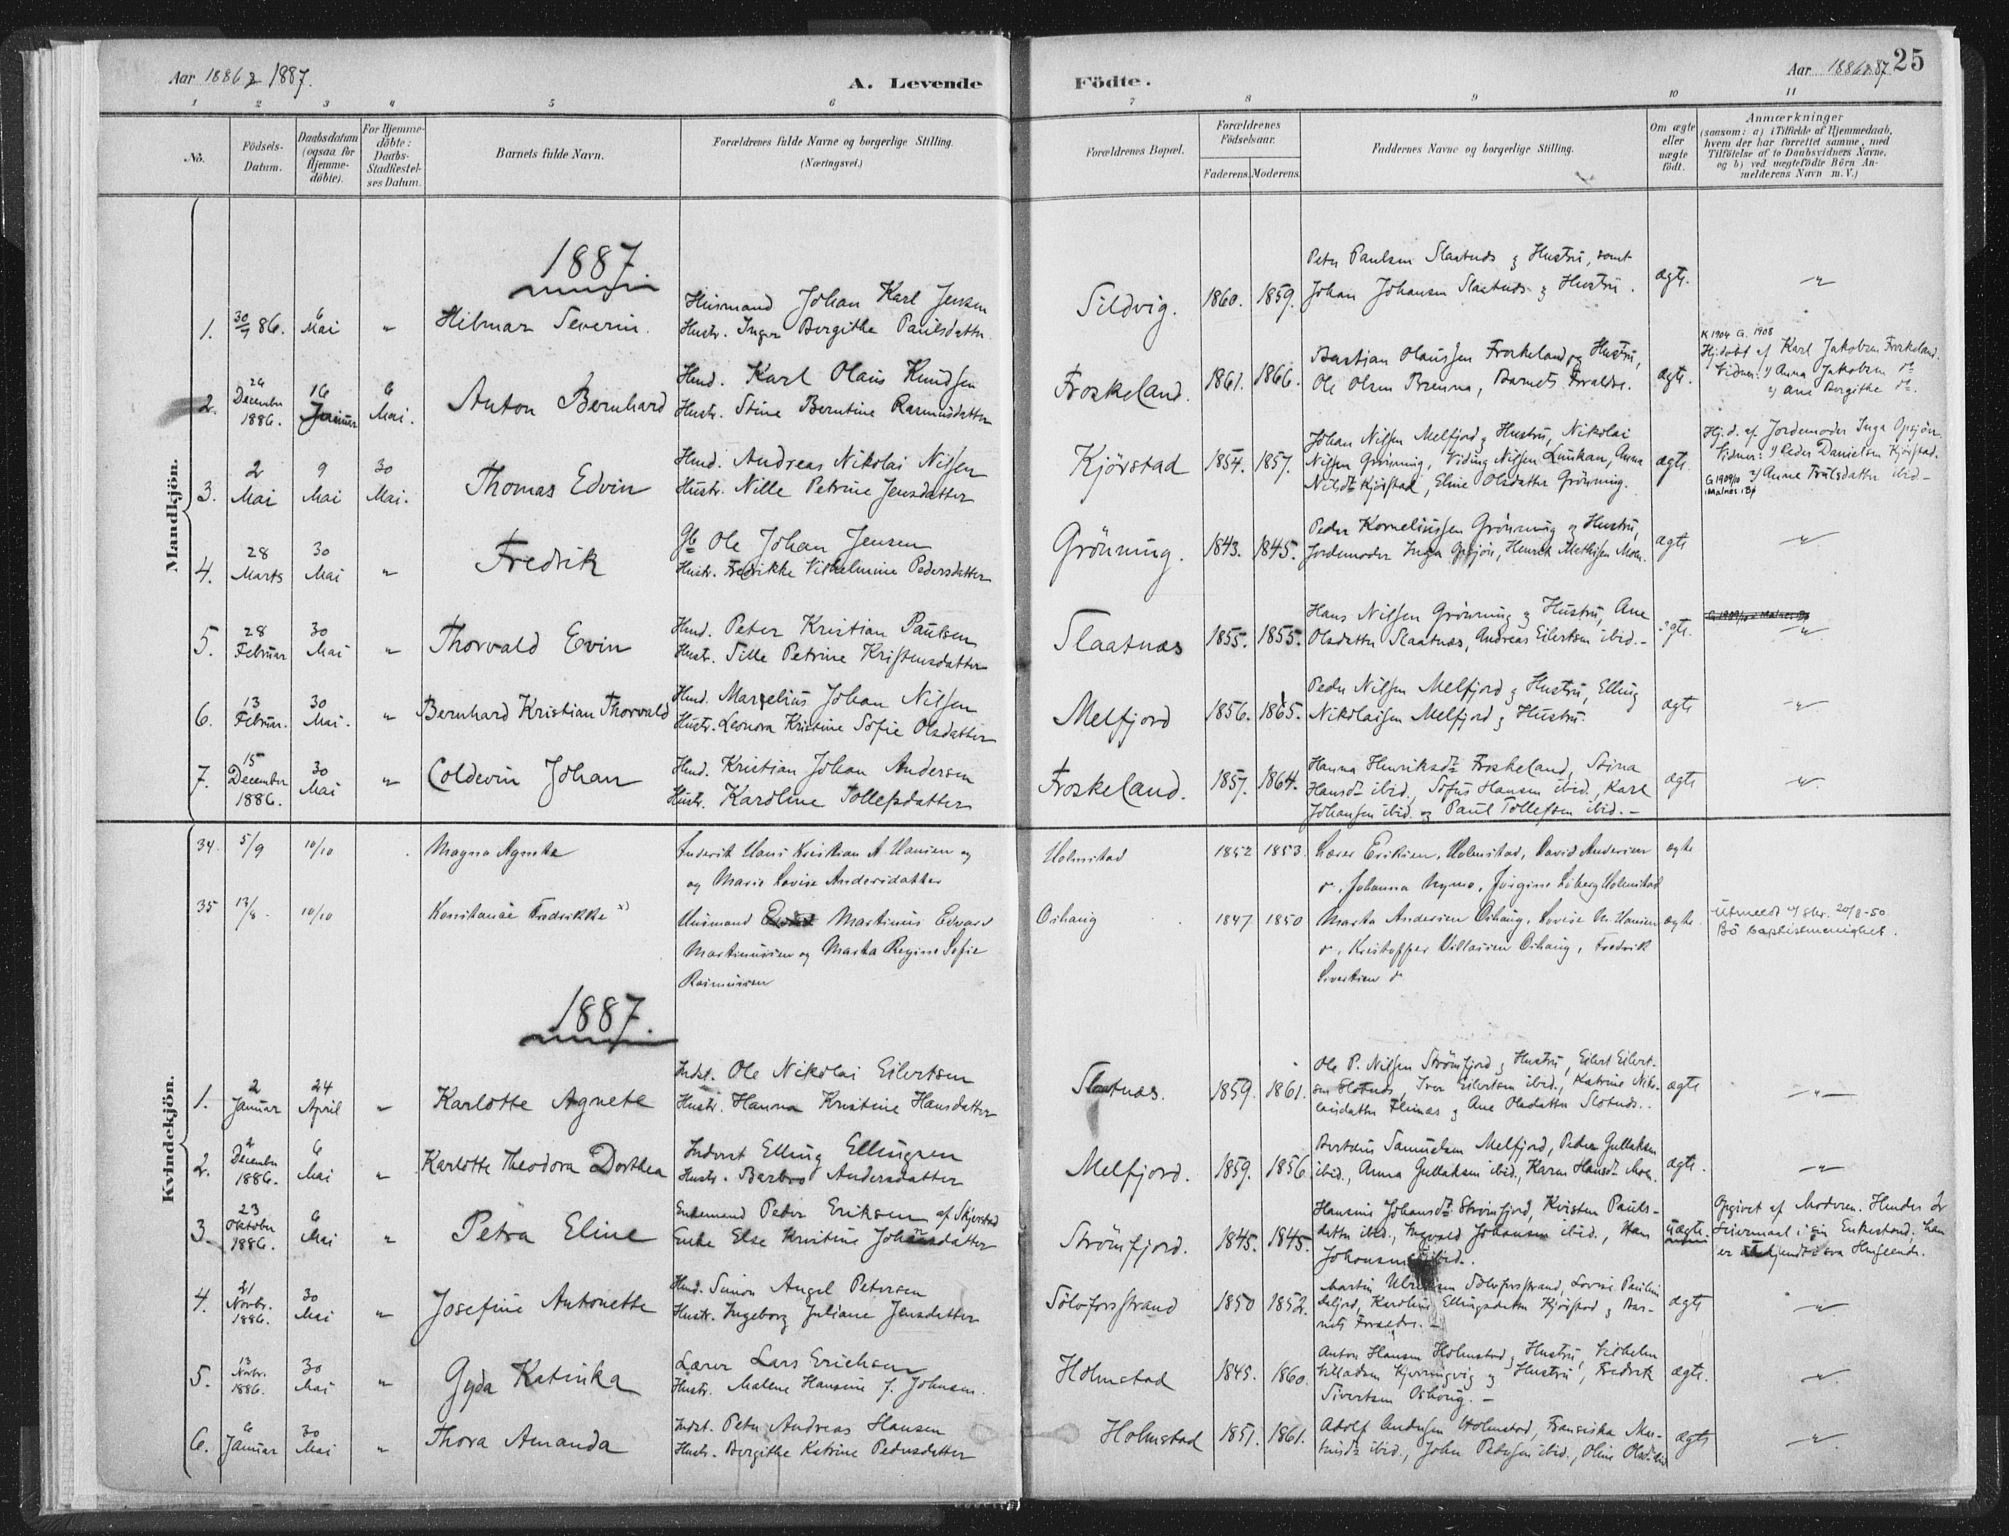 Aar 1886 & 1887.
A. Levende
Födte.
Aar 1886 & 87
25
1 2 3 4 5 6 7 8 9 10 11
No.
Födsels-
Datum.
Daabsdatum
(ogsaa for
Hjemme-
döbte).
For Hjemme-
döbte:
Daabs-
Stadfæstel-
ses Datum.
Barnets fulde Navn.
Forældrenes fulde Navne og borgerlige Stilling.
(Næringsvei.)
Forældrenes Bopæl.
Forældrenes
Födselsaar.
Faderens. Moderens.
Faddernes Navne og borgerlige Stilling.
Om ægte
eller
uægte
födt.
Anmærkninger
(saasom: a) i Tilfælde af Hjemmedaab,
hvem der har forrettet samme, med
Tilföielse af to Daabsvidners Navne,
og b) ved uægtefödte Börn An-
melderens Navn m. V.)
Mandkjön.
1887.
1. 30/9 86. 6 Mai " Hilmar Severin.
Husmand Johan Karl Jensen
Hustr. Inger Bergithe Paulsdatter
Sildvig. 1860. 1859.
Peter Paulsen Slaatnæs & Hustru, samt
Johan Johansen Slaatnæs & Hustru.
ægte. "
2. 26 December 1886. 16 Januar 6 Mai. Anton Bernhard
Hmd. Karl Olaus Knudsen
Hustr. Stine Berntine Rasmusdatter
Froskeland. 1861. 1866.
Bastian Olaussen Froskeland og Hustru,
Ole Olsen Brenna, Barnets Forældre.
ægte.
K 1904 G. 1908
Hj.döbt af Karl Jakobsen Froskeland.
Vidner: 1) Anna Jakobsen do
2) Ane Bergithe do.
3. 2 Mai 9 Mai 30 Mai. Thomas Edvin
Hmd. Andreas Nikolai Nilsen
Hustr. Nille Petrine Jensdatter
Kjörstad 1854. 1857.
Johan Nilsen Melfjord & Hustru, Nikolai
Nilsen Grönning, Viding Nilsen Laukan, Anna
Nilsdtr Kjörstad, Eline Olsdatter Grönning.
ægte
Hj.d. af Jordemoder Inga Opsjön.
Vidner: 1) Peder Danielsen Kjörstad.
2) Anne Trulsdatter ibid -
G 1909/10 i Malnes i Bø
4. 28 Marts 30 Mai " Fredrik
Gb Ole Johan Jensen
Hustr. Fredrikke Vilhelmine Pedersdatter
Grönning. 1843. 1845.
Peder Korneliussen Grönning & Hustru,
Jordemoder Inga Opsjön, Henrik Mathisen Moen.
ægte "
5. 28 Februar 30 Mai " Thorvald Evin
Hmd. Peter Kristian Paulsen
Hustr. Sille Petrine Kristensdatter
Slaatnæs 1855. 1855.
Hans Nilsen Grönning & Hustru, Ane
Olsdatter Slaatnæs, Andreas Eilertsen ibid. -
ægte. G 1909/10 i Malnes Bø "
6. 13 Februar. 30 Mai. " Bernhard Kristian Thorvald
Hmd. Marselius Johan Nilsen
Hustr. Leonora Kristine Sofie Olsdatter
Melfjord 1856. 1865.
Peder Nilsen Melfjord & Hustru, Elling
Nikolaisen Melfjord & Hustru.
ægte "
7. 15 December 1886. 30 Mai " Coldevin Johan
Hmd. Kristian Johan Andersen
Hustr. Karoline Tollefsdatter
Froskeland. 1857. 1864.
Hanna Henriksdtr Froskeland, Stina
Hansdtr ibid., Sofus Hansen ibid., Karl
Johansen ibid. og Paul Tollefsen ibid. -
ægte "
Kvindekjön.
34. 5/9 10/10 Magna Agnete
Inderst Hans Kristian A Hansen og
og Marie Lovise Andersdatter
Holmstad 1852 1853.
Lærer Eriksen, Holmstad, David Andersen
do, Johanna Nymo, Jörgine Söberg Holmstad
ægte
35 13/8. 10/10 Konstanse Fredrikke x)
Husmand Martinus Edvard
Martinussen og Marta Regine Sofie
Rasmussen
Oshaug 1847 1850
Marta Andersen Oshaug, Lovise M. Hansen
do, Kristoffer Villassen Oshaug, Fredrik
Sivertsen do
ægte.
Utmeldt 20/8-50.
Bö baptistmenighet.
1887.
1. 2 Januar 24 April " Karlotte Agnete
Indst. Ole Nikolai Eilertsen
Hustr. Hanna Kristine Hansdatter
Slaatnæs. 1859. 1861.
Ole P. Nilsen Strömfjord & Hustru, Eilert Eilert-
sen Slotnæs, Iver Eilertsen ibid., Katrine Niko-
laisdatter Flinæs & Ane Olsdatter Slotnæs.
ægte "
2. 2 December 1886. 6 Mai " Karlotte Theodora Dorthea
Inderst Elling Ellingsen
Hustr. Barbro Andersdatter
Melfjord. 1859. 1856
Bertheus Samuelsen Melfjord, Peder Gullaksen
ibid., Anna Gullaksen ibid., Karen Hansdtr Moen.
ægte. "
3. 23 Oktober 1886. 6 Mai " Petra Eline
Enkemand Peder Eriksen af Skjörstad
Enke Else Kristine Johansdatter
Strömfjord. 1845. 1845.
Hansine Johansdtr Strömfjord, Kristen Pauls-
datter ibid., Ingvald Johansen ibid., Hans
Johansen ibid.
uægte.
Opgivet af Moderen. Hendes 2r
Leiermaal i sin Enkestand; han
er
4. 21 Novbr. 1886. 30 Mai " Josefine Antonette
Hmd. Simon Angel Petersen
Hustr. Ingeborg Juliane Jensdatter
Sölvforsstrand 1850 1852.
Martin Ulriksen Sölvforsstrand, Lovise Pauline
Karoline Ellingsdatter Kjörstad & Bar-
nets Forældr. -
ægte "
5. 13 Novbr. 1886. 30 Mai " Gyda Katinka
Lærer Lars Erichsen
Hustr. Malene Hansine f. Johnsen.
Holmstad 1845. 1860.
Anton Hansen Holmstad & Hustru, Vilhelm
Villadsen Kjerringvig & Hustru, Fredrik
Sivertsen Oshaug. -
ægte. "
6. 6 Januar 30 Mai " Thora Amanda
Indst. Peter Andreas Hansen
Hustr. Bergithe Katrine Pedersdatter
Holmstad 1851. 1861.
Adolf Andersen Holmstad, Fransiska Mar-
ibid., John Pedersen ibid., Oline Olsdtr ibid
ægte "